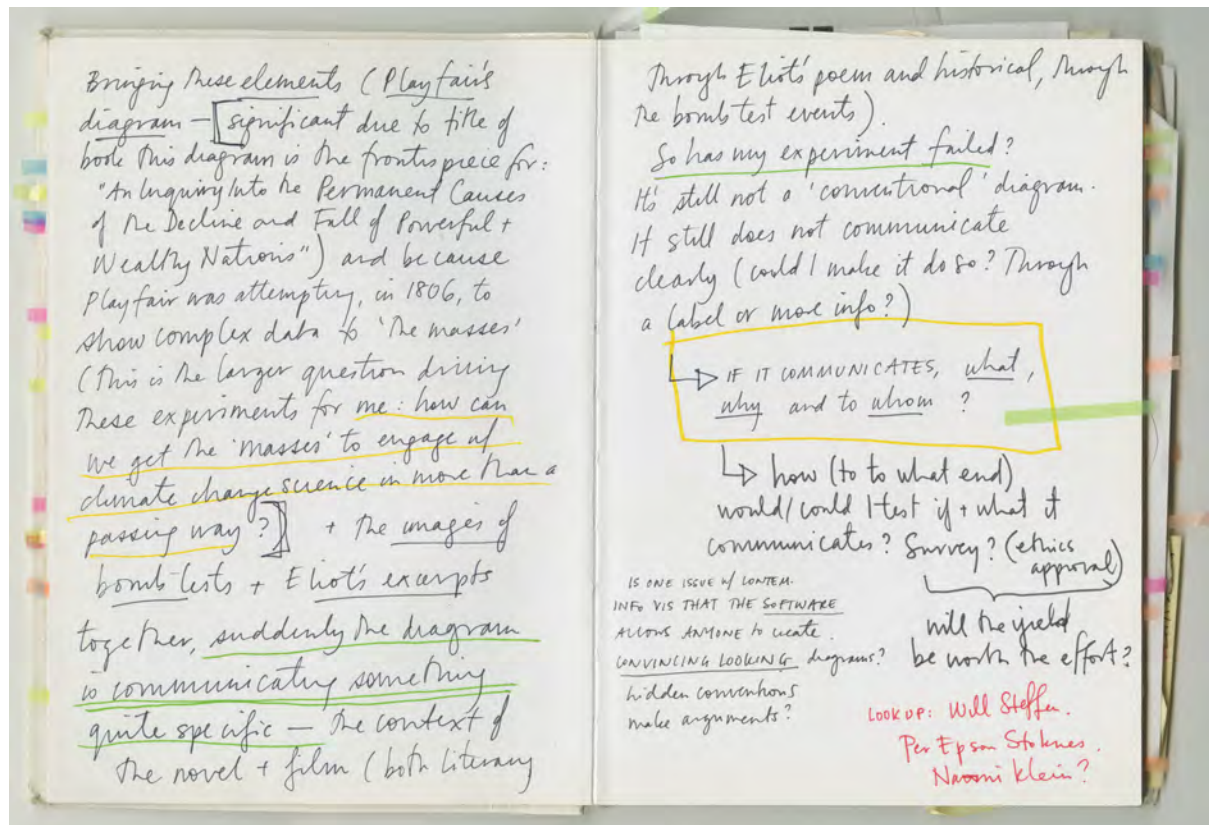 Bringing these elements (Playfair's
diagram — [significant due to title of
book this diagram is the frontispiece for:
"An Inquiry Into the Permanent Causes
of the Decline and Fall of Powerful +
Wealthy Nations") and because
Playfair was attempting, in 1806, to
show complex data to 'the masses'
(this is the larger question driving
these experiments for me: how can
we get the 'masses' to engage w/
climate change science in more than a
passing way?)] + the images of
bomb tests + Eliot's excerpts
together, suddenly the diagram
is communicating something
quite specific — the context of
the novel + film (both literary
Through Eliot's poem and historical, through
the bomb test events).
So has my experiment failed?
It's still not a 'conventional' diagram.
It still does not communicate
clearly (could I make it do so? Through
a label or more info?)
IF IT COMMUNICATES, what,
why and to whom ?
how (to to what end)
would/could I test if + what it
communicates? Survey? (ethics
approval)
will the yield
be worth the effort?
IS ONE ISSUE W/ CONTEM.
INFO VIS THAT THE SOFTWARE
ALLOWS ANYONE to create
CONVINCING LOOKING diagrams?
hidden conventions
make arguments?
LOOK UP: Will Steffen.
Per Epson Stoknes.
Naomi Klein?